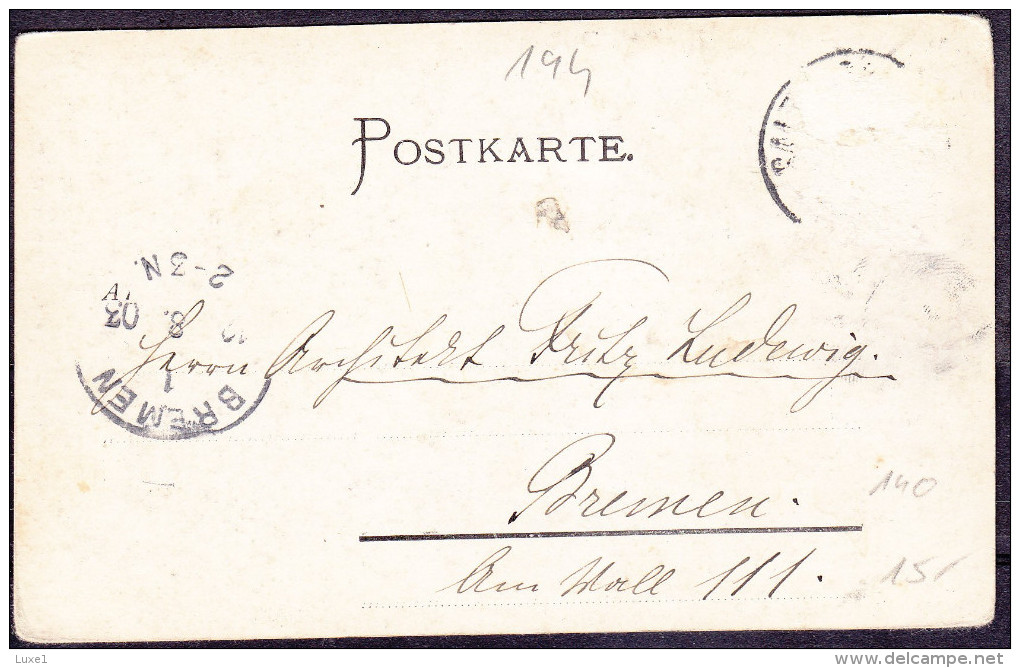 194
POSTKARTE.
2-3 N.
8. 03
1
BREMEN
Herrn Architekt Fritz Ludewig.
Bremen.
140
Am Wall 111.
Luxe1
delcampe.net